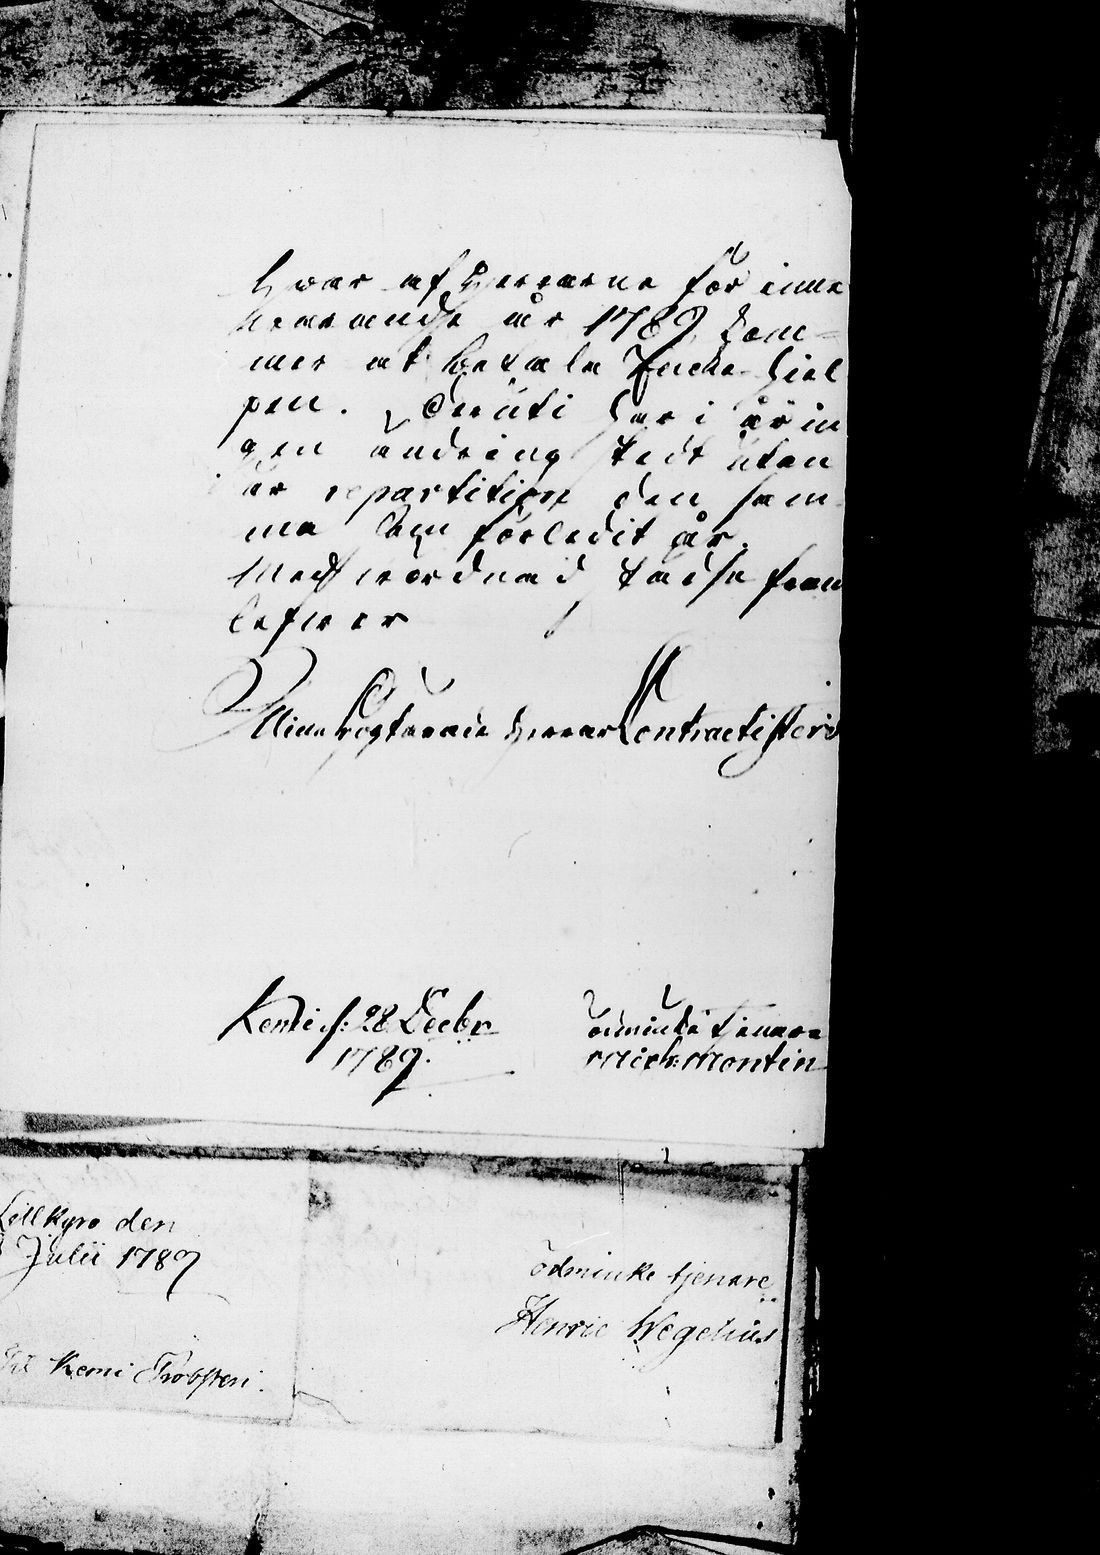 hwar af Herrarne för inne
warande år 1789 kom=
mer at betala Encke hjel
pen. Deruti har i år in
gen ändring skedt utan
är repartition den sam
ma som förledit år.
Med wördnad städse fram
lefwer
Mine Högtärade Herrar Contractisters
Kemi d: 28 Decbr
1789.
ödmiuke tjenare
Mich: Montin
Lillkyro den
Julii 1789
ödmiuke tjenare
Henric Wegelius
Til Kemi Probsteri.